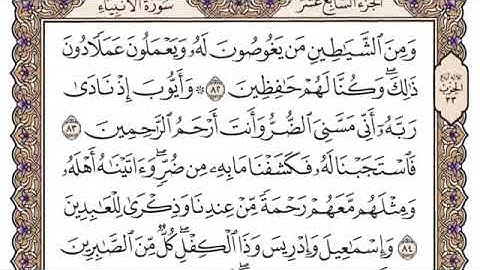 الجزء السابع عشر
سورة الأنبياء
وَمِنَ ٱلشَّيَٰطِينِ مَن يَغُوصُونَ لَهُۥ وَيَعْمَلُونَ عَمَلًا دُونَ
ذَٰلِكَۖ وَكُنَّا لَهُمْ حَٰفِظِينَ ٨٢ ۞ وَأَيُّوبَ إِذْ نَادَىٰ
رَبَّهُۥٓ أَنِّي مَسَّنِيَ ٱلضُّرُّ وَأَنتَ أَرْحَمُ ٱلرَّٰحِمِينَ ٨٣
فَٱسْتَجَبْنَا لَهُۥ فَكَشَفْنَا مَا بِهِۦ مِن ضُرٍّۖ وَءَاتَيْنَٰهُ أَهْلَهُۥ
وَمِثْلَهُم مَّعَهُمْ رَحْمَةً مِّنْ عِندِنَا وَذِكْرَىٰ لِلْعَٰبِدِينَ
٨٤ وَإِسْمَٰعِيلَ وَإِدْرِيسَ وَذَا ٱلْكِفْلِۖ كُلٌّ مِّنَ ٱلصَّٰبِرِينَ
الحزب
٣٣